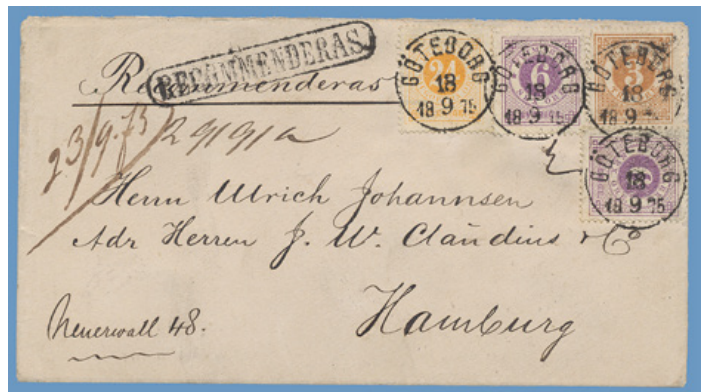 Recommenderas
RECOMMENDERAS
24
6
3
GÖTEBORG
18
18 9 75
GÖTEBORG
18
18 9 75
GÖTEBORG
18
18 9 75
GÖTEBORG
18
18 9 75
Herrn Ulrich Johannsen
Adr Herren J. W. Claudius & Co
Hamburg
Neuerwall 48.